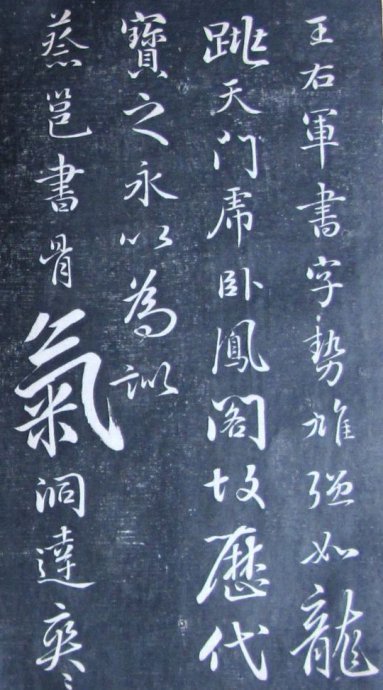 王右軍書字勢雄强如龍
跳天門虎卧鳳閣故歷代
寶之永以為訓
蔡邕書骨氣洞達爽〻